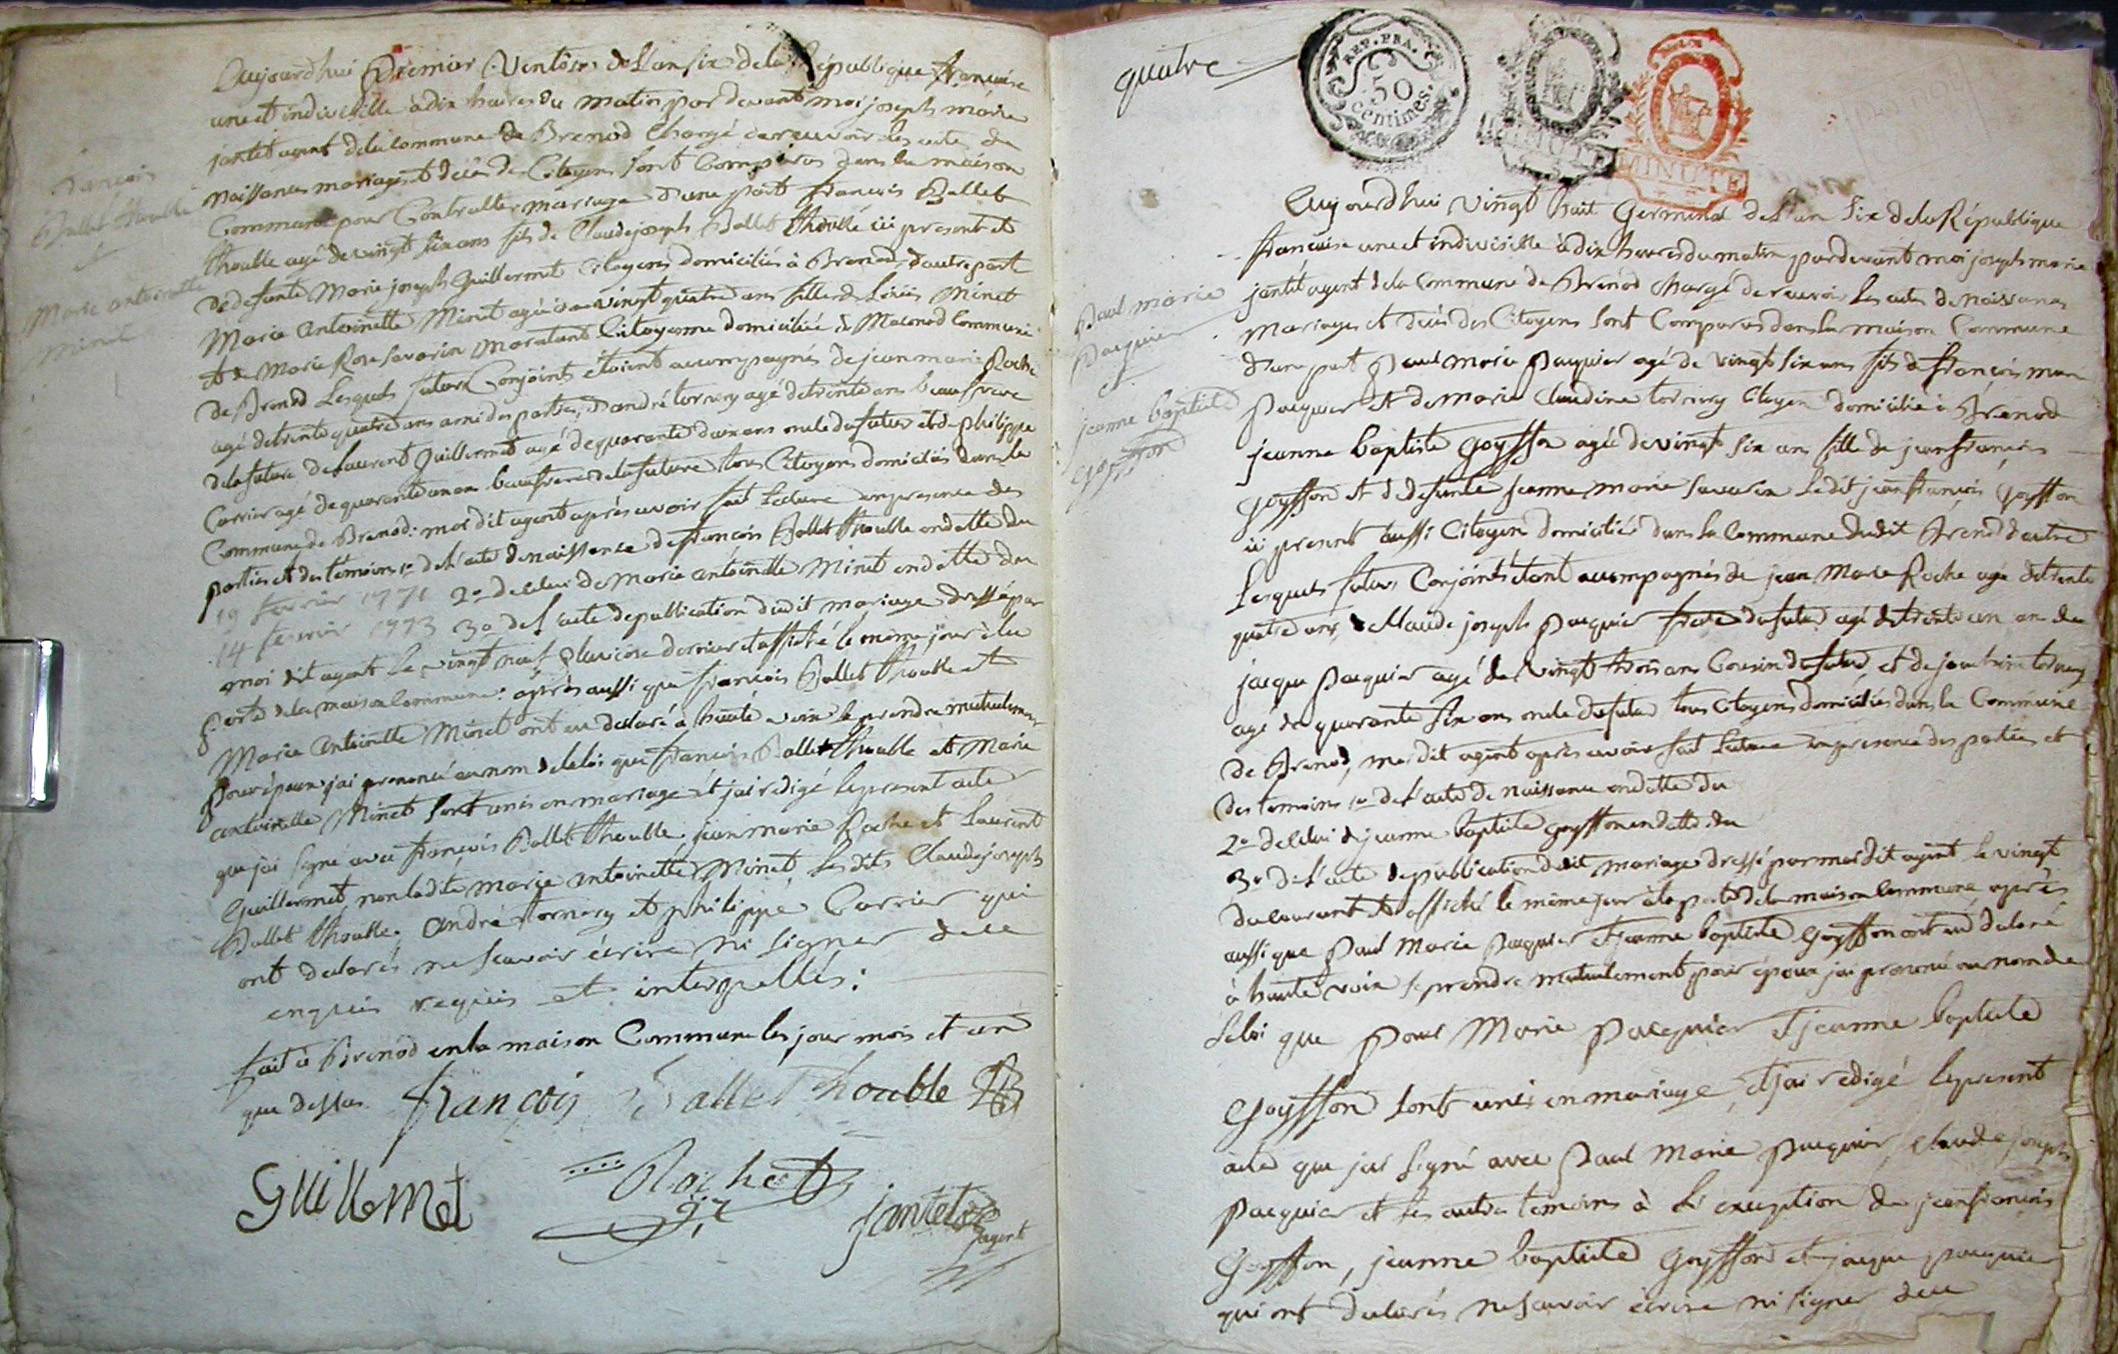 françois
Ballet Thouble
et
Marie antoinette
Minet
Aujourdhui Premier Ventose de L'an six de la République françoise
une et indivisible à dix heures du matin par devant moi joseph marie
jantet agent de la commune de Brenod Chargé de recevoir les actes de
Naissances mariages et décès des Citoyens sont Comparus dans la maison
Commune pour Contracter mariage d'une part françois Ballet
thouble agé de vingt six ans fils de Claude joseph Ballet thouble ici present et
de defunte Marie joseph Guillermet Citoyens domiciliés à Brenod, d'autre part
Marie Antoinette Minet agée de vingt quatre ans fille de Minet
et de Marie Rose Savarin Citoyenne domiciliée à Maconod Commune
de Brenod Lesquels futurs Conjoints étoient accompagnés de jean marie Roche
agé de trente quatre ans ami des parties, d'andré tornery agé de trente ans beaufrere
de la future de Laurent Guillermet agé de quarante deux ans oncle du futur et de philippe
Carrier agé de quarante un ans beaufrere de la future tous Citoyens domiciliés dans la
Commune de Brenod: moi dit agent après avoir fait Lecture en presence des
parties et des temoins 1º de L'acte de naissance de françois Ballet thouble en datte du
19 fevrier 1771 2º de celui de Marie antoinette Minet en datte du
14 fevrier 1773 3º de L'acte de publication dudit mariage dressé par
moi dit agent le vingt neuf pluviose dernier et affiché le même jour à la
porte de la maison Commune: après aussi que françois Ballet thouble et
Marie Antoinette Minet ont eu déclaré à haute voix se prendre mutuellement
pour époux j'ai prononcé au nom de la loi que françois Ballet thouble et Marie
antoinette Minet sont unis en mariage et j'ai redigé le present acte
que j'ai signé avec françois Ballet thouble, jean marie Roche et Laurent
Guillermet, non ladite Marie antoinette Minet, Lesdits Claude joseph
Ballet thouble, André tornery et philippe Carrier qui
ont declarés ne sçavoir écrire ni signer de ce
enquis requis et interpellés:
fait à Brenod en la maison Commune les jour mois et an
que dessus françois Ballet Thouble
Guillemet Rochet jantet
agent
quatre
REP. FRA.
50
Centimes.
MINUTE
Paul marie
Paequier
et
jeanne baptiste
Goyffon
Aujourdhui vingt huit Germinal de L'an Six de la République
françoise une et indivisible à dix heures du matin par devant moi joseph marie
jantet agent de la Commune de Brenod chargé de recevoir les actes de Naissances
Mariages et décès des Citoyens sont Comparus dans la maison Commune
d'une part Paul marie Pacquier agé de vingt six ans fils de françois marie
Pacquier et de Marie Claudine tornery Citoyen domicilié à Brenod
jeanne baptiste Goyffon agée de vingt six ans fille de jean françois
Goyffon et de defunte jeanne marie Savarin Ledit jean françois Goyffon
ici present aussi Citoyen domicilié dans la Commune dudit Brenod d'autre
Lesquels futurs Conjoints étant accompagnés de jean Marie Roche agé de trente
quatre ans, de Claude joseph Pacquier frere du futur agé de trente un ans de
jacque Pacquier agé de vingt trois ans Cousin du futur, et de tornery
agé de quarante six ans oncle du futur tous Citoyens domiciliés dans la Commune
de Brenod, moi dit agent après avoir fait Lecture en presence des parties et
des temoins 1º de L'acte de naissance en datte du
2º de celui de jeanne baptiste Goyffon en datte du
3º de L'acte de publication dudit mariage dressé par moi dit agent le vingt
du courant et affiché le même jour à la porte de la maison Commune après
aussi que Paul Marie Pacquier et jeanne baptiste Goyffon ont eu declaré
à haute voix se prendre mutuellement pour époux j'ai prononcé au nom de
la loi que Paul Marie Pacquier et jeanne baptiste
Goyffon sont unis en mariage, et j'ai redigé le present
acte que j'ai signé avec Paul Marie Pacquier, Claude joseph
Pacquier et les autres temoins à L'exception de jean françois
Goyffon, jeanne baptiste Goyffon et jacque pacquier
qui ont declarés ne sçavoir écrire ni signer de ce